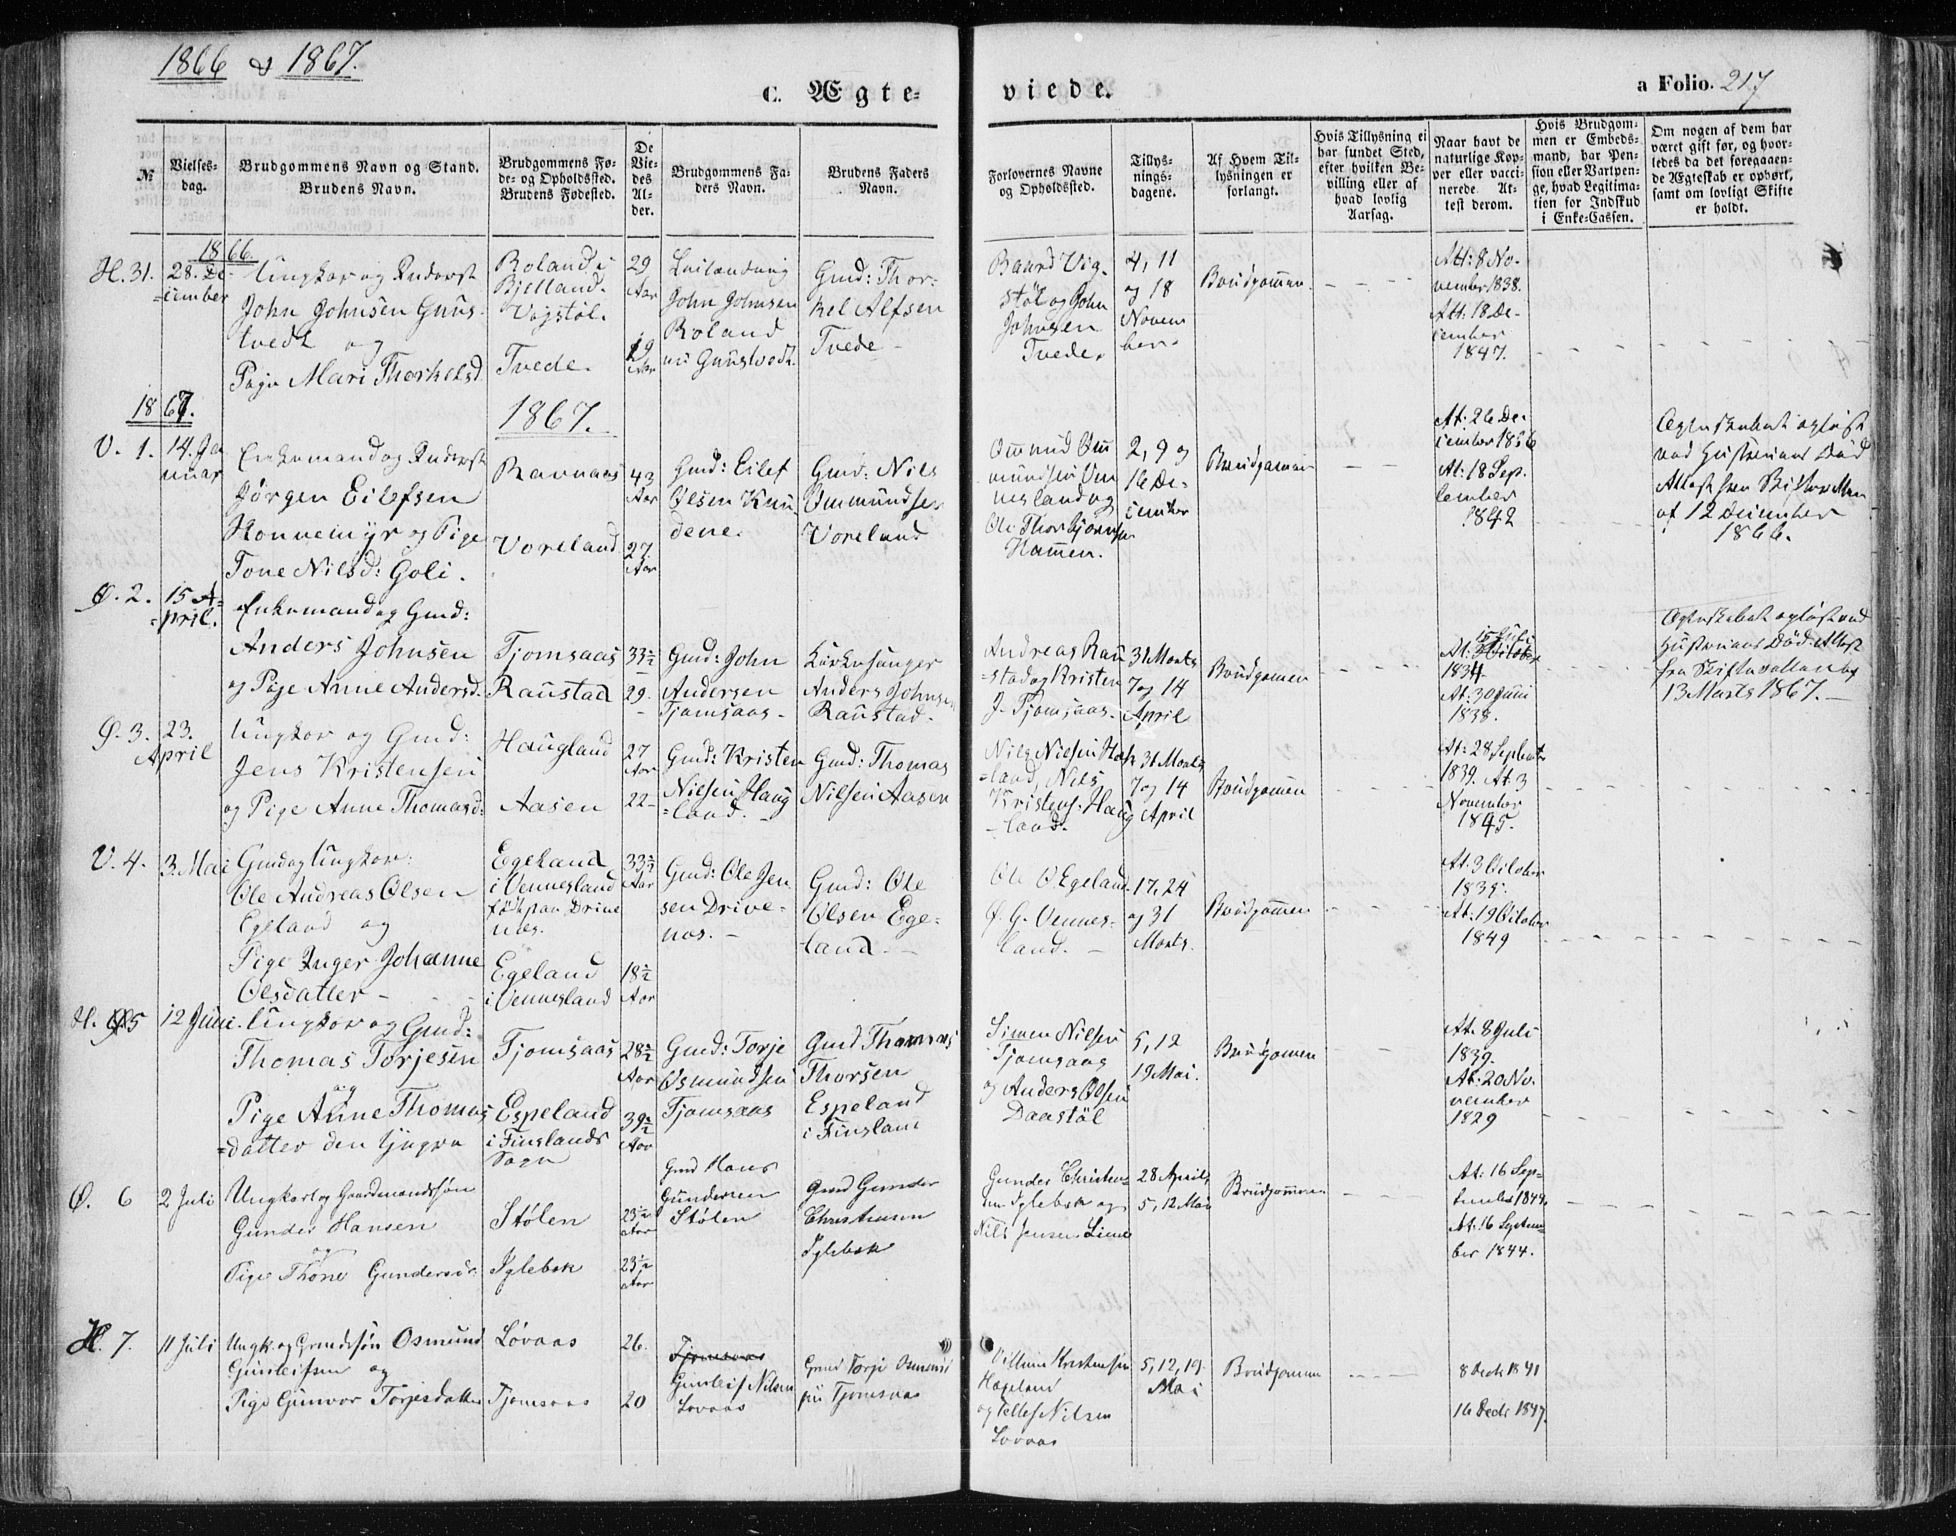 1866 & 1867.
C. Ægte-
viede.
a Folio. 217
№
Vielses-
dag.
Brudgommens Navn og Stand.
Brudens Navn.
Brudgommens Fø-
de- og Opholdssted.
Brudens Fødested.
De
Vie-
des
Al-
der.
Brudgommens Fa-
ders Navn.
Brudens Faders
Navn.
Forlovernes Navne
og Opholdssted.
Tillys-
nings-
dagene.
Af Hvem Til-
lysningen er
forlangt.
Hvis Tillysning ei
har fundet Sted,
efter hvilken Be-
villing eller af
hvad lovlig
Aarsag.
Naar havt de
naturlige Kop-
per eller vacci-
nerede. At-
test derom.
Hvis Brudgom-
men er Embeds-
mand, har Pen-
sion eller Vartpen-
ge, hvad Legitima-
tion for Indskud
i Enke-Cassen.
Om nogen af dem har
været gift før, og hvor-
ledes da det foregaaen-
de Ægteskab er ophørt,
samt om lovligt Skifte
er holdt.
1866.
H. 31.
28. De-
=cember
Ungkar og Inderst
John Johnsen
tvedt og
Pige Mari Thorkelsd
Roland i
Bjelland.
Vigstøl.
Tvede.
29
Aar
19
Aar
John Johnsen
Roland
Gmd: Thor-
kel Alfsen
Tvede
Baard Vig-
støl og John
Johnsen
Tvede.
4, 11
og 18
Novem
ber.
Brudgommen
Att: 8 No-
vember 1838.
Att: 18 De-
cember
1847.
1867.
1867.
V. 1.
14. Ja
nuar
Enkemand og Inderst
Jørgen Eilefsen
Honnemyr og Pige
Tone Nilsd: Goli.
Ravnaas
Voreland
43
Aar
27
Aar
Gmd: Eilef
Olsen
dene.
Gmd: Nils
Ommundsen
Voreland
Ommund Om
mundsen Ven
nesland og
Ole Thorbjørnsen
Hammen.
2, 9 og
16 De-
cember
Brudgommen
At: 26 De-
cember 1836
At: 18 Sep-
tember
1842
Ægteskabet opløst
ved Hustruens Død
Attest fra Skifteretten
af 12 December
1866.
Ø. 2.
15 A-
=pril.
Enkemand og Gmd:
Anders Johnsen
og Pige Anne Andersd.
Tjomsaas
Raustad
33½
29.
Gmd: John
Andersen
Tjomsaas.
Kirkesanger
Anders Johnsen
Raustad.
Andreas Rau
stad og Kristen
J. Tjomsaas.
31 Marts
7 og 14
April
Brudgommen
15 Juli
At: 3 October
1834.
At: 30 Juni
1838.
Ægteskabet opløst ved
Hustruens Død Attest
fra Skifteretten af
13 Marts 1867.
Ø. 3.
23.
April
Ungkar og Gmd:
Jens Kristensen
og Pige Anne Thomasd:
Haugland
Aasen
27
Aar
22
Gmd: Kristen
Nilsen Haug
=land.
Gmd: Thomas
Nilsen Aasen
Nils Nilsen
=land, Nils
Kristens. Haug
=land.
31 Marts
7 og 14
April
Brudgommen
At: 28 September
1839. At: 3
November
1845.
V. 4.
3. Mai
Gmd og Ungkar:
Ole Andreas Olsen
Egeland og
Pige Inger Johanne
Olsdatter
Egeland
i Vennesland
født paa Drive
næs.
Egeland
i Vennesland
33½
Aar
18½
Aar
Gmd: Ole Jen
sen Drive-
nes.
Gmd: Ole
Olsen Ege-
land.
Ole O. Egeland.
Ø. G. Vennes-
land.
17, 24
og 31
Marts.
Brudgommen
At: 3 October
1835.
At: 19 October
1849
H. 5
12 Juni.
Ungkar og Gmd:
Thomas Torjesen
og
Pige Anne Thomas
=datter den yngre
Tjomsaas
Espeland
i Finslands
Sogn
28½
Aar
39½
Aar
Gmd: Torje
Osmundsen
Tjomsaas
Gmd Thomas
Thorsen
Espeland
i Finsland
Simen Nilsen
Tjomsaas
og Anders Olsen
Daastøl
5, 12
19 Mai.
Brudgommen
At: 8 Juli
1839.
At: 20 No-
vember
1829
Ø. 6
2 Juli
Ungkarl og Gaardmandssøn
Gunder Hansen
og
Pige Thone Gundersdr.
Stølen
Iglebæk
23½
Aar
23½
Aar
Gmd Hans
Gundersen
Stølen
Gmd Gunder
Christensen
Iglebæk
Gunder Christen-
sen Iglebæk og
Nils Jensen
28 April,
5, 12 Mai
Brudgommen
At: 16 Sep-
tember 1844.
At: 16 Septem-
ber 1844.
H. 7.
11 Juli
Ungk. og Gmdssøn Osmund
Gunleifsen og
Pige Gunvor Torjesdatter
Løvaas
Tjomsaas
26.
20
Tjomsaas
Gunleif Nilsen
Løvaas
Gmd Torje Osmund
sen Tjomsaas
Villum Kristensen
Hægeland
og Tellef Nilsen
Løvaas
5, 12, 19
Mai
Brudgommen
8 Decbr 1841
16 Decbr 1847.